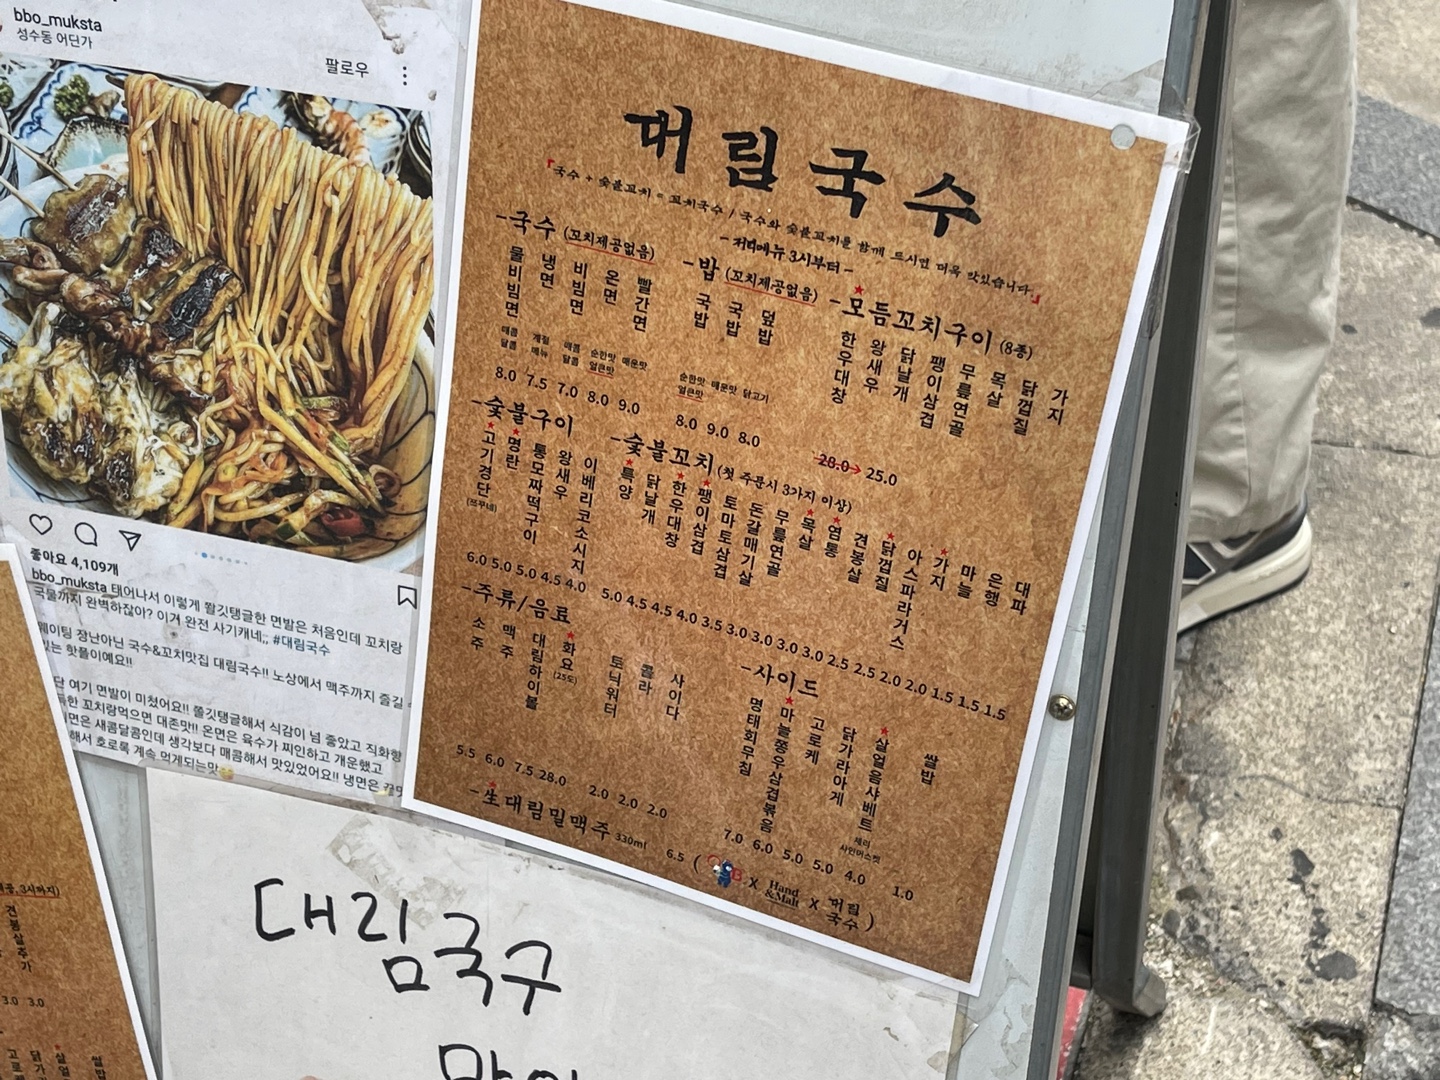 bbo_muksta
성수동 어딘가
팔로우
좋아요 4,109개
bbo_muksta 태어나서 이렇게 쫄깃탱글한 면발은 처음인데 꼬치랑
국물까지 완벽하잖아? 이거 완전 사기캐네,, #대림국수
웨이팅 장난아닌 국수&꼬치맛집 대림국수!! 노상에서 맥주까지 즐길
있는 핫플이예요!!
단 여기 면발이 미쳤어요!! 쫄깃탱글해서 식감이 넘 좋았고 직화향
득한 꼬치랑먹으면 대존맛!! 온면은 육수가 찌인하고 개운했고
면은 새콤달콤인데 생각보다 매콤해서 맛있었어요!! 냉면은
해서 호로록 계속 먹게되는맛
대림국수
『국수 + 숯불꼬치 = 꼬치국수 / 국수와 숯불꼬치를 함께 드시면 더욱 맛있습니다.』
- 저녁메뉴 3시부터 -
- 국수 (꼬치제공없음)
물비빔면 매콤달콤 8.0
냉면 계절메뉴 7.5
비빔면 매콤달콤 7.0
온면 순한맛 얼큰맛 8.0
빨간면 매운맛 9.0
- 밥 (꼬치제공없음)
국밥 순한맛 얼큰맛 8.0
국밥 매운맛 9.0
덮밥 닭고기 8.0
- 모듬꼬치구이 (8종)
한우대창
왕새우
닭날개
팽이삼겹
무릎연골
목살
닭껍질
가지
28.0→25.0
- 숯불구이
고기경단 (쯔꾸네) 6.0
명란 5.0
통모짜떡구이 5.0
왕새우 4.5
이베리코소시지 4.0
- 숯불꼬치 (첫 주문시 3가지 이상)
특양 5.0
닭날개 4.5
한우대창 4.5
팽이삼겹 4.0
토마토삼겹 3.5
돈갈매기살 3.0
무릎연골 3.0
목살 3.0
염통 3.0
견봉살 2.5
닭껍질 2.5
아스파라거스 2.0
가지 2.0
마늘 1.5
은행 1.5
대파 1.5
- 주류/음료
소주 5.5
맥주 6.0
대림하이볼 7.5
화요 (25도) 28.0
토닉워터 2.0
콜라 2.0
사이다 2.0
- 사이드
명태회무침 7.0
마늘쫑우삼겹볶음 6.0
고로케 5.0
닭가라아게 5.0
살얼음샤베트 체리 샤인머스켓 4.0
쌀밥 1.0
- 生대림밀맥주 330ml 6.5 ( B X Hand &Malt X 대림국수 )
3시까지)
견봉살
추가
3.0 3.0
고로
닭가
살얼
쌀밥
대림국수